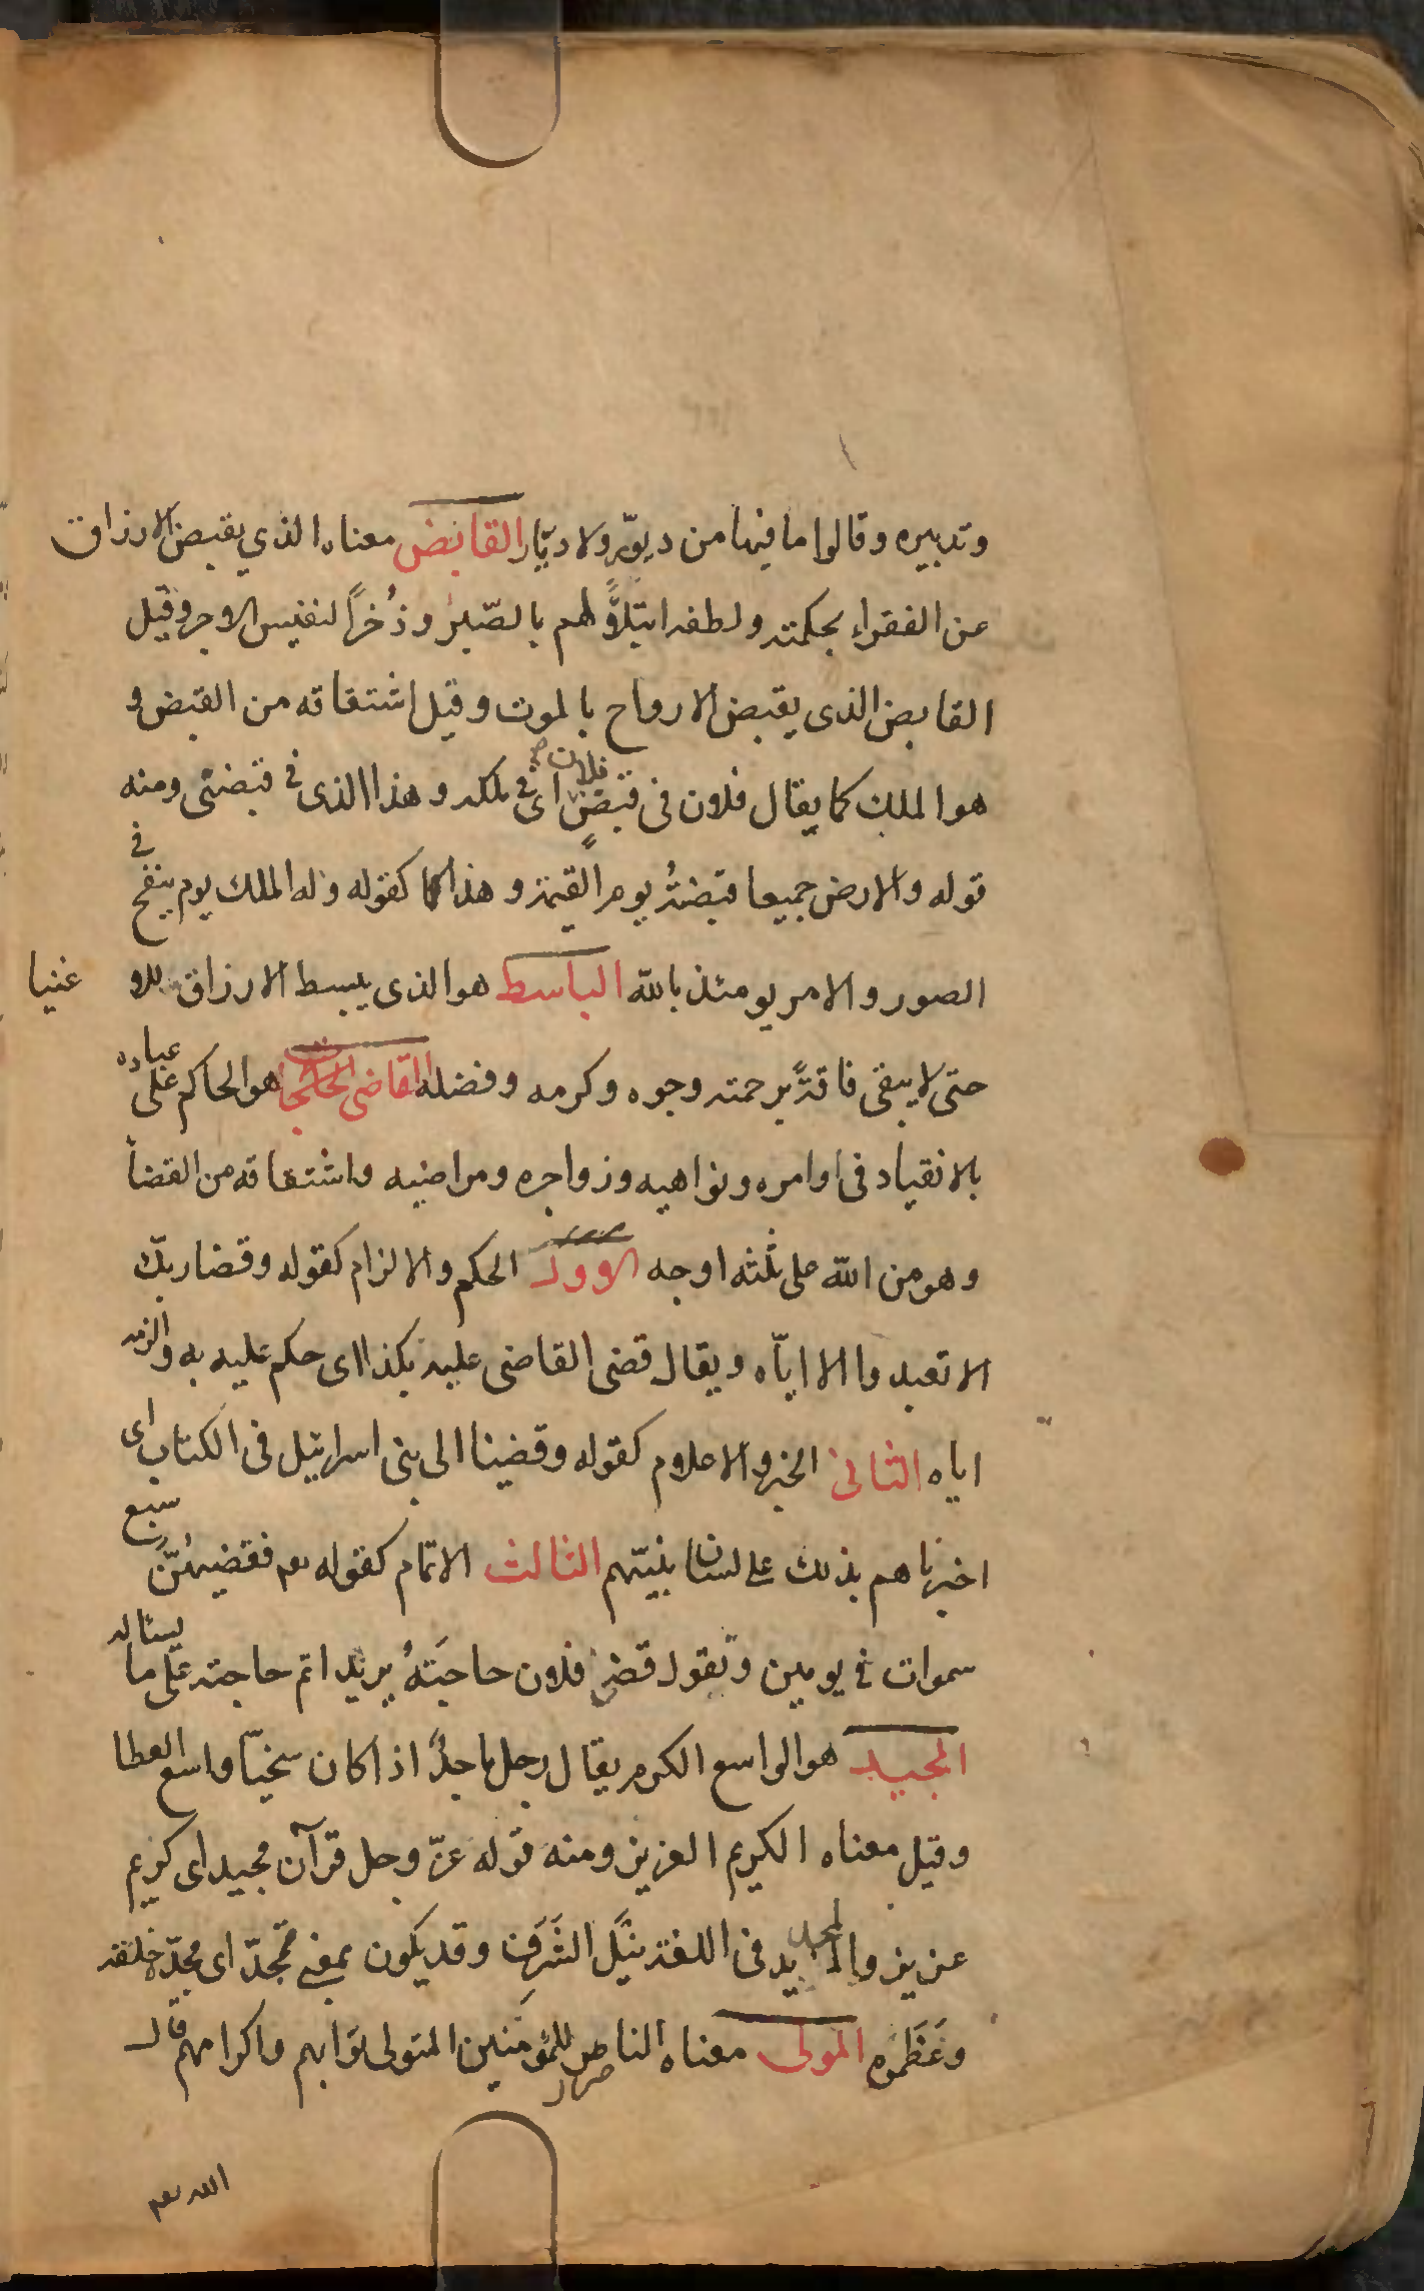 وتدبيره وقالوا ما فيها من ديّور ولا ديّار القابض معناه الذي يقبض الارزاق
عن الفقراء بحكمته ولطفه ابتلاءً لهم بالصّبر وذُخراً لنفيس الاجر وقيل
القابض الذى يقبض الارواح بالموت وقيل اشتقاقه من القبض و
هو الملك كما يقال فلان فى قبض فلان اى فى ملكه وهذا الذى فى قبضتى ومنه
قوله والارض جميعا قبضتُه يوم القيمة وهذا كما كقوله وله الملك يوم ينفخ فى
الصور والامر يومئذ بالله الباسط هو الذى يبسط الارزاق للا غنيا
حتى لا يبقى فاقةً برحمته وجوه وكرمه وفضله القاضى هو الحاكم على عباده
بالانقياد فى اوامره ونواهيه وزواجره ومراضيه واشتقاقه من القضأ
وهو من الله على ثلثه اوجه الاول الحكم والالزام كقوله وقضا ربّك
الا تعبدوا الا ايّاه ويقال قضى القاضى عليه بكذا اى حكم عليه به والزمه
اياه الثانى الخبر والاعلام كقوله وقضينا الى بنى اسرائيل فى الكتاب اى
اخبرناهم بذلك على لسان نبيّهم الثالث الاتمام كقوله تعم فقضيهُنّ سبع
سموات فى يومين وتقول قضى فلان حاجَتهُ يريد اتم حاجته على ما يسئاله
المجيد هو الواسع الكرم يقال رجل ماجدٌ اذا كان سخيّا واسع العطا
وقيل معناه الكريم العزيز ومنه قوله عزّ وجل قرآن مجيد اى كريم
عزيز والمجد فى اللغة نيَل الشَرَف وقد يكون بمعنى ممجّد اى مجدّه خلقه
وعَظَموه المولى معناه الناصر للمؤمنين المتولى ثوابهم واكرامهم قال
الله تعم